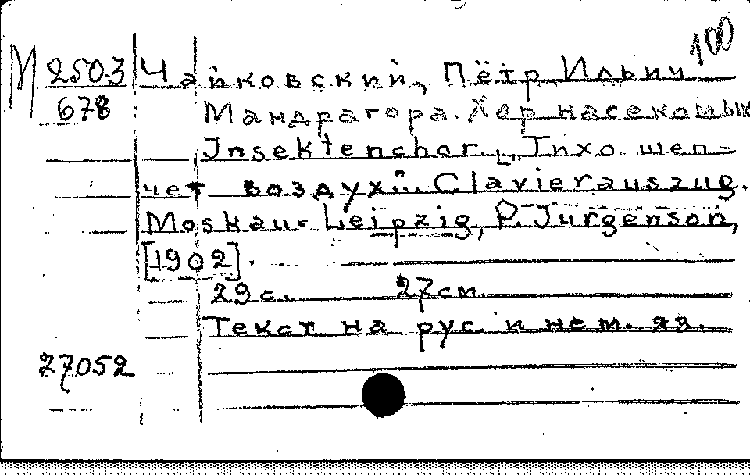 100
М 2503 Чайковский, Пётр Ильич
678 Мандрагора. Хор насекомых
Insektenchor. „Тихо шеп-
чет воздух"... Clavierauszug.
Moskau-Leipzig, P. Jurgenson,
[1902].
29 с. 27 см
Текст на рус. и нем. яз.
27052